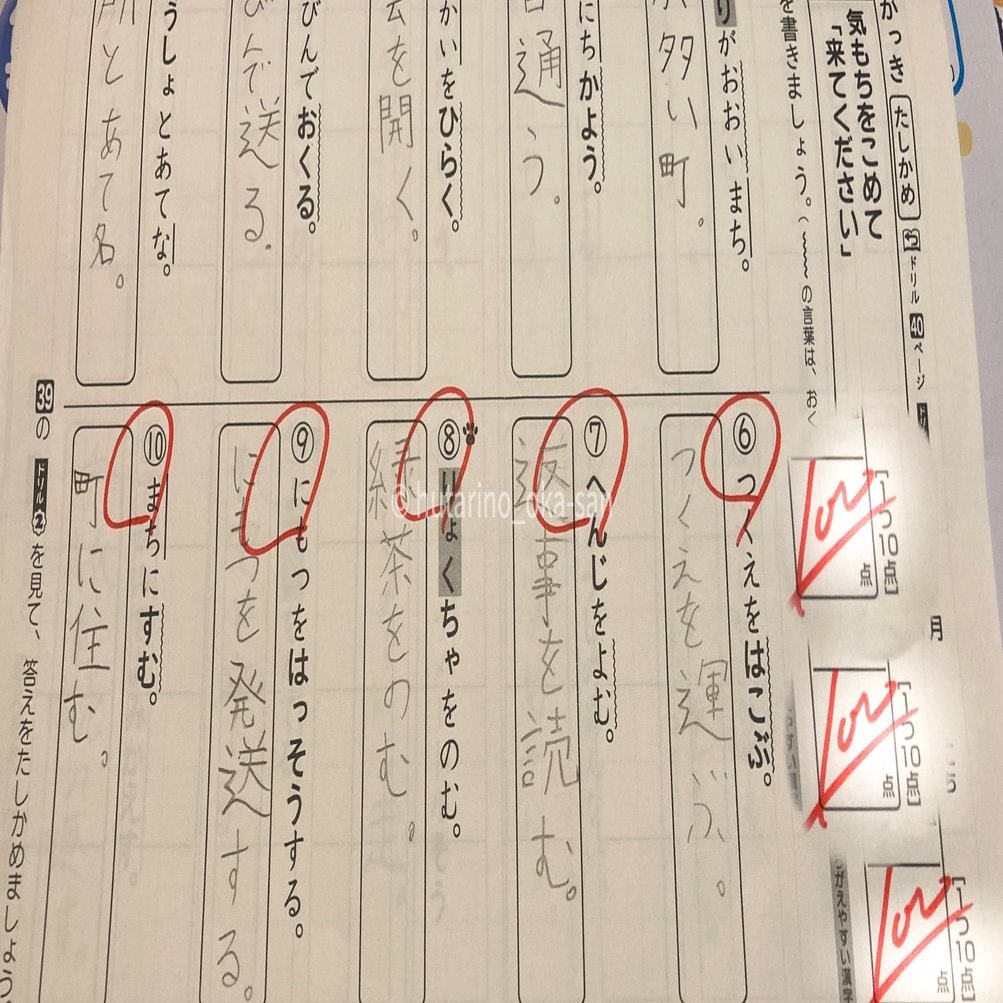 かっき たしかめ ドリル 40 ページ
気もちをこめて
「来てください」
を書きましょう。(の言葉は、おく
月
[1つ10点]
点
[1つ10点]
点
[1つ10点]
点
がえやすい漢字
りがおおいまち。
多い町。
にちかよう。
通う。
かいをひらく。
を開く。
びんでおくる。
びんで送る。
うしょとあてな。
所とあて名。
⑥ つくえをはこぶ。
つくえを運ぶ。
⑦ へんじをよむ。
返事を読む。
⑧ りょくちゃをのむ。
緑茶をのむ。
⑨ にもつをはっそうする。
にもつを発送する。
⑩ まちにすむ。
町に住む。
39の ドリル② を見て、答えをたしかめましょう
© hutarino_oka-san